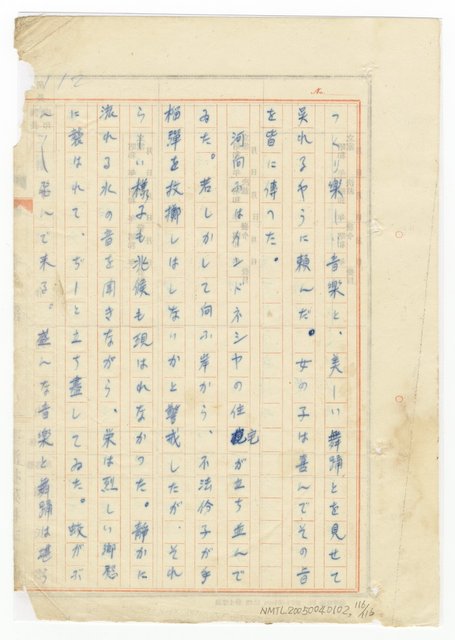 112
No.
つくり楽しい音楽と、美しい舞踊とを見せて
呉れるやうに頼んだ。女の子は喜んでその旨
を皆に傳へた。
河向ふはインドネシヤの住宅が立ち並んで
ゐた。若しかして向ふ岸から、不法伶子が手
榴弾を抜擲しはしないかと警戒したが、それ
らしい様子も兆候も現はれなかつた。静かに
流れる水の音を聞きながら、栄は烈しい郷愁
に襲はれて、ぢーと立ち盡してゐた。蚊がボ
飛んで来る。並んな音楽と舞踊は
NMTL20050040102
116/116